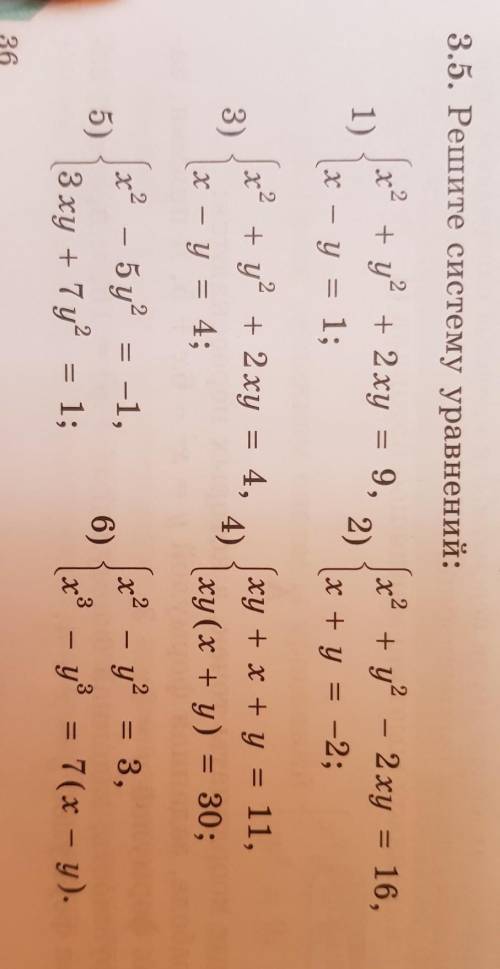 3.5. Решите систему уравнений:
1) { x² + y² + 2xy = 9,
x − y = 1;
2) { x² + y² − 2xy = 16,
x + y = −2;
3) { x² + y² + 2xy = 4,
x − y = 4;
4) { xy + x + y = 11,
xy(x + y) = 30;
5) { x² − 5y² = −1,
3xy + 7y² = 1;
6) { x² − y² = 3,
x³ − y³ = 7(x − y).
36